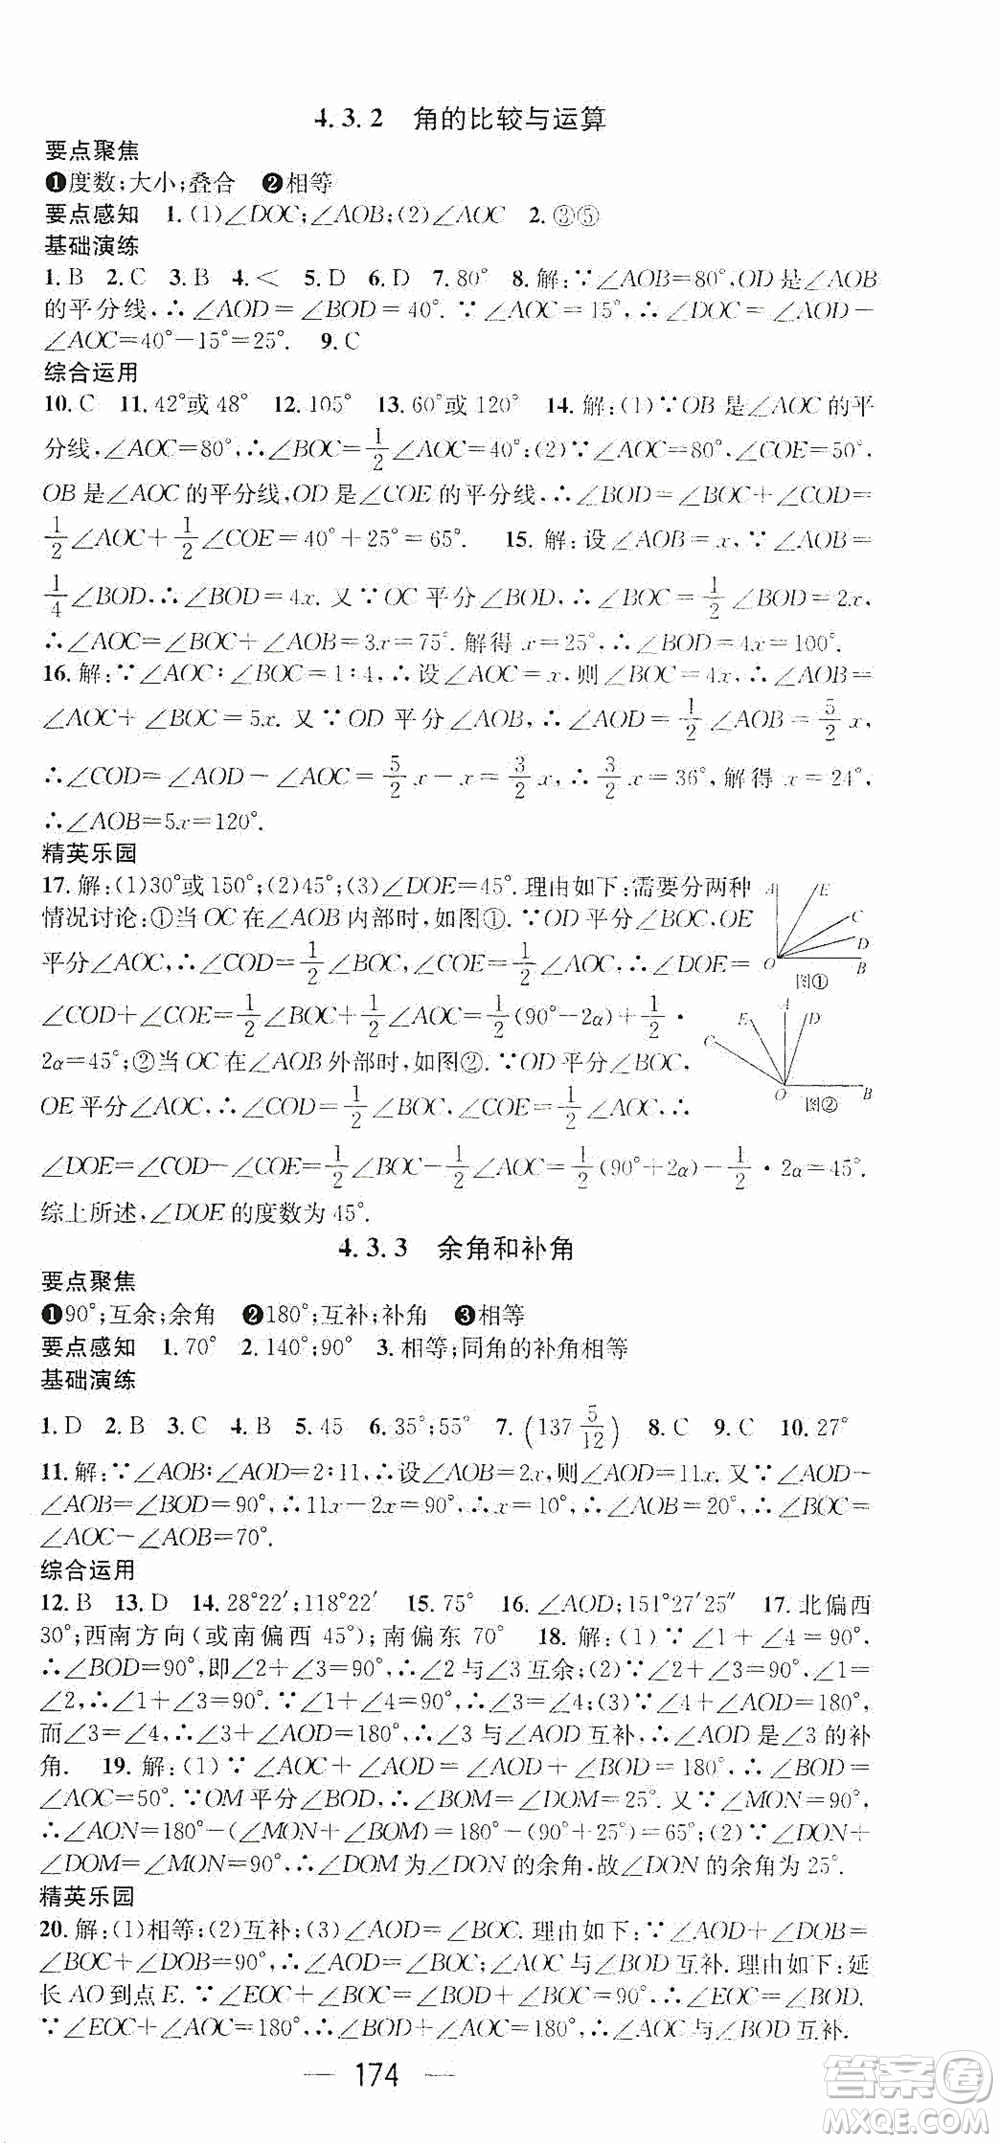 4.3.2 角的比较与运算
要点聚焦
❶度数;大小;叠合 ❷相等
要点感知 1.(1)∠DOC;∠AOB;(2)∠AOC 2.③⑤
基础演练
1.B 2.C 3.B 4.< 5.D 6.D 7.80° 8.解:∵∠AOB=80°,OD是∠AOB
的平分线,∴∠AOD=∠BOD=40°.∵∠AOC=15°,∴∠DOC=∠AOD-
∠AOC=40°-15°=25°. 9.C
综合运用
10.C 11.42°或48° 12.105° 13.60°或120° 14.解:(1)∵OB是∠AOC的平
分线,∠AOC=80°,∴∠BOC=1/2∠AOC=40°;(2)∵∠AOC=80°,∠COE=50°,
OB是∠AOC的平分线,OD是∠COE的平分线,∴∠BOD=∠BOC+∠COD=
1/2∠AOC+1/2∠COE=40°+25°=65°. 15.解:设∠AOB=x,∵∠AOB=
1/4∠BOD,∴∠BOD=4x.又∵OC平分∠BOD,∴∠BOC=1/2∠BOD=2x,
∴∠AOC=∠BOC+∠AOB=3x=75°.解得x=25°,∴∠BOD=4x=100°.
16.解:∵∠AOC∶∠BOC=1∶4,∴设∠AOC=x,则∠BOC=4x,∴∠AOB=
∠AOC+∠BOC=5x.又∵OD平分∠AOB,∴∠AOD=1/2∠AOB=5/2x,
∴∠COD=∠AOD-∠AOC=5/2x-x=3/2x,∴3/2x=36°,解得x=24°,
∴∠AOB=5x=120°.
精英乐园
17.解:(1)30°或150°;(2)45°;(3)∠DOE=45°.理由如下:需要分两种
情况讨论:①当OC在∠AOB内部时,如图①.∵OD平分∠BOC,OE
平分∠AOC,∴∠COD=1/2∠BOC,∠COE=1/2∠AOC,∴∠DOE=
∠COD+∠COE=1/2∠BOC+1/2∠AOC=1/2(90°-2α)+1/2·
2α=45°;②当OC在∠AOB外部时,如图②.∵OD平分∠BOC,
OE平分∠AOC,∴∠COD=1/2∠BOC,∠COE=1/2∠AOC,∴
∠DOE=∠COD-∠COE=1/2∠BOC-1/2∠AOC=1/2(90°+2α)-1/2·2α=45°.
综上所述,∠DOE的度数为45°.
A E C D O B
图①
A E D C O B
图②
4.3.3 余角和补角
要点聚焦
❶90°;互余;余角 ❷180°;互补;补角 ❸相等
要点感知 1.70° 2.140°;90° 3.相等;同角的补角相等
基础演练
1.D 2.B 3.C 4.B 5.45 6.35°;55° 7.(137 5/12) 8.C 9.C 10.27°
11.解:∵∠AOB∶∠AOD=2∶11,∴设∠AOB=2x,则∠AOD=11x.又∵∠AOD-
∠AOB=∠BOD=90°,∴11x-2x=90°,∴x=10°,∴∠AOB=20°,∴∠BOC=
∠AOC-∠AOB=70°.
综合运用
12.B 13.D 14.28°22′;118°22′ 15.75° 16.∠AOD;151°27′25″ 17.北偏西
30°;西南方向(或南偏西45°);南偏东70° 18.解:(1)∵∠1+∠4=90°,
∴∠BOD=90°,即∠2+∠3=90°,∴∠2与∠3互余;(2)∵∠2+∠3=90°,∠1=
∠2,∴∠1+∠3=90°.∵∠1+∠4=90°,∴∠3=∠4;(3)∵∠4+∠AOD=180°,
而∠3=∠4,∴∠3+∠AOD=180°,∴∠3与∠AOD互补,∴∠AOD是∠3的补
角. 19.解:(1)∵∠AOC+∠AOD=∠AOD+∠BOD=180°,∴∠BOD=
∠AOC=50°.∵OM平分∠BOD,∴∠BOM=∠DOM=25°.又∵∠MON=90°,
∴∠AON=180°-(∠MON+∠BOM)=180°-(90°+25°)=65°;(2)∵∠DON+
∠DOM=∠MON=90°,∴∠DOM为∠DON的余角,∴∠DON的余角为25°.
精英乐园
20.解:(1)相等;(2)互补;(3)∠AOD=∠BOC.理由如下:∵∠AOD+∠DOB=
∠BOC+∠DOB=90°,∴∠AOD=∠BOC;∠AOC与∠BOD互补.理由如下:延
长AO到点E.∵∠EOC+∠BOC=∠BOD+∠BOC=90°,∴∠EOC=∠BOD.
∵∠EOC+∠AOC=180°,∴∠BOD+∠AOC=180°,∴∠AOC与∠BOD互补.
— 174 —
答案圈
MXQE.COM